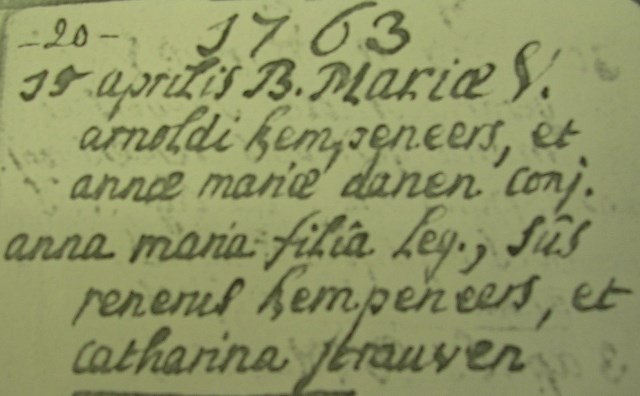 -20- 1763
15 aprilis B. Mariæ V.
arnoldi kempeneers, et
annæ mariæ danen conj.
anna maria filia leg., sūs
renerus kempeneers, et
catharina strauven